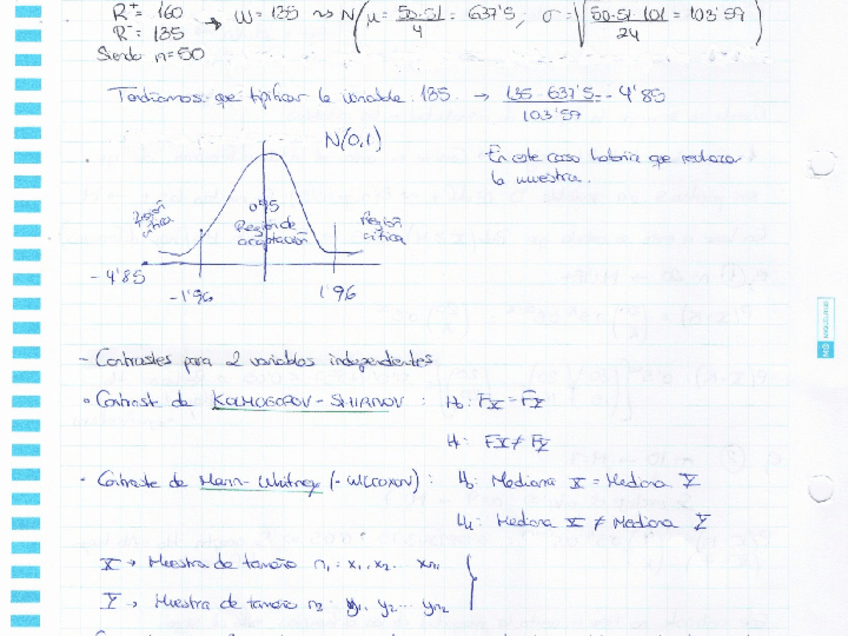 R⁺= 160
R⁻= 135 → W=135 ~> N(μ= 50·51/4 = 637'5, σ=√(50·51·101/24) = 103'59)
Siendo n=50
Tendríamos que tipificar la variable 135 → 135-637'5/103'59 = -4'85
N(0,1)
En este caso habría que rechazar
la muestra.
Región crítica
0'95
Región de
aceptación
Región
crítica
-4'85
-1'96
1'96
- Contrastes para 2 variables independientes
• Contraste de KOLMOGOROV-SMIRNOV : H₀: Fx = Fy
H₁: Fx ≠ Fy
· Contraste de Mann-Whitney (-Wilcoxon) : H₀: Mediana X = Mediana Y
H₁: Mediana X ≠ Mediana Y
X → Muestra de tamaño n₁: x₁, x₂... xn₁
Y → Muestra de tamaño n₂: y₁, y₂... yn₂